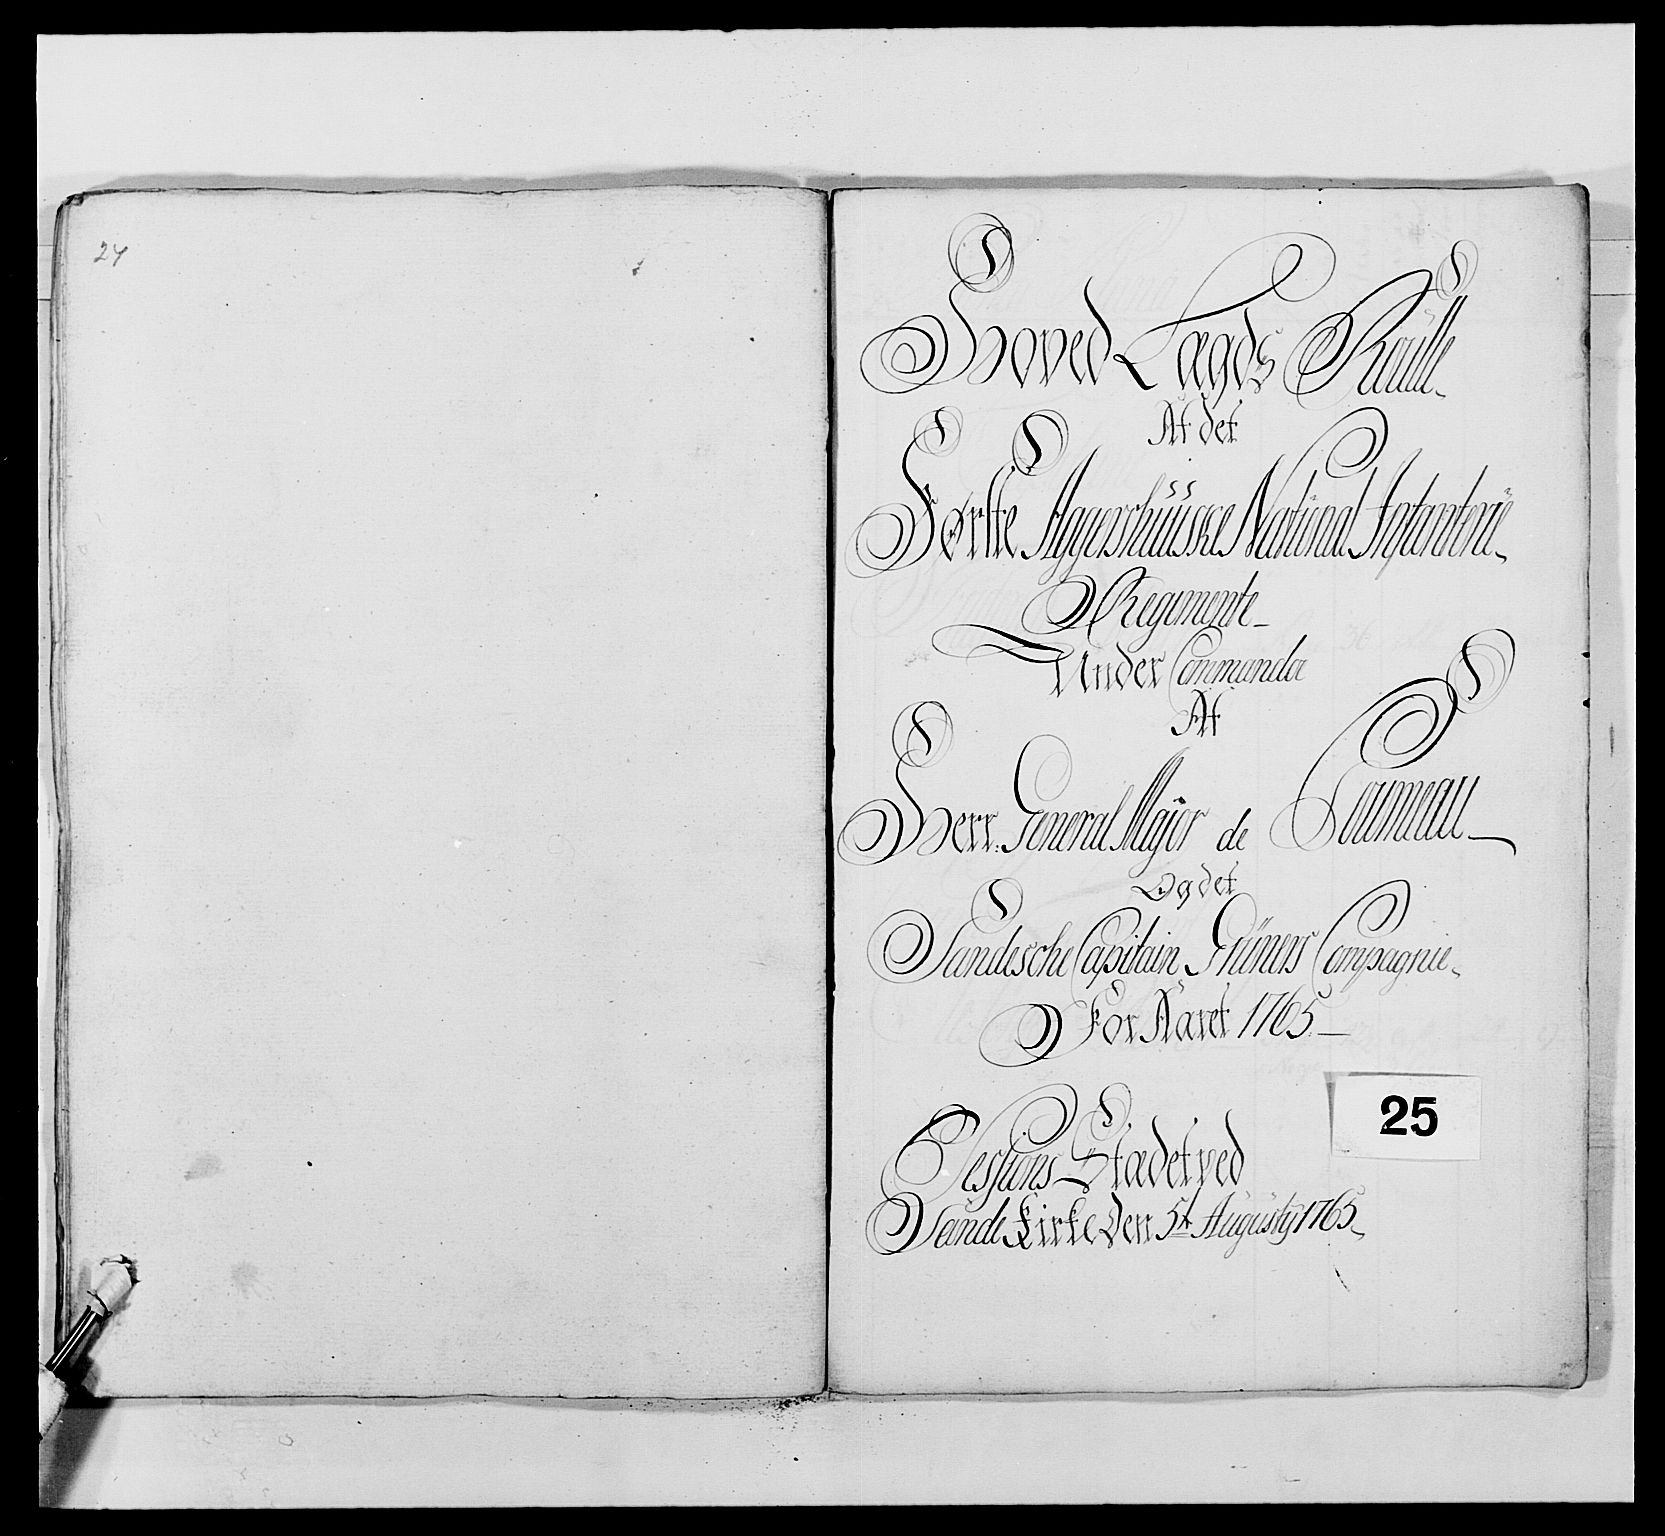 24
Hoved Lægds Rulle
Af det
Første Aggershuuske National Infanterie
Regimente
Under Commando
Af
Herr. General Major de
Og det
Sandesche Capitain Grüners Compagnie
For Aaret 1765
25
Sessions Stædet ved
Sande Kirke den 5t Augusty 1765